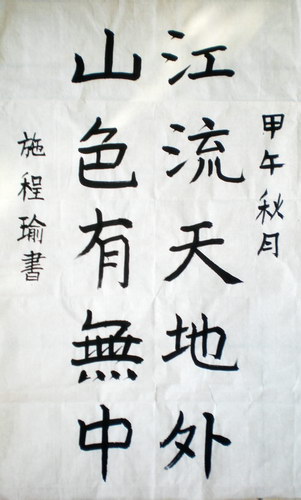 甲午秋月
江流天地外
山色有無中
施程瑜書